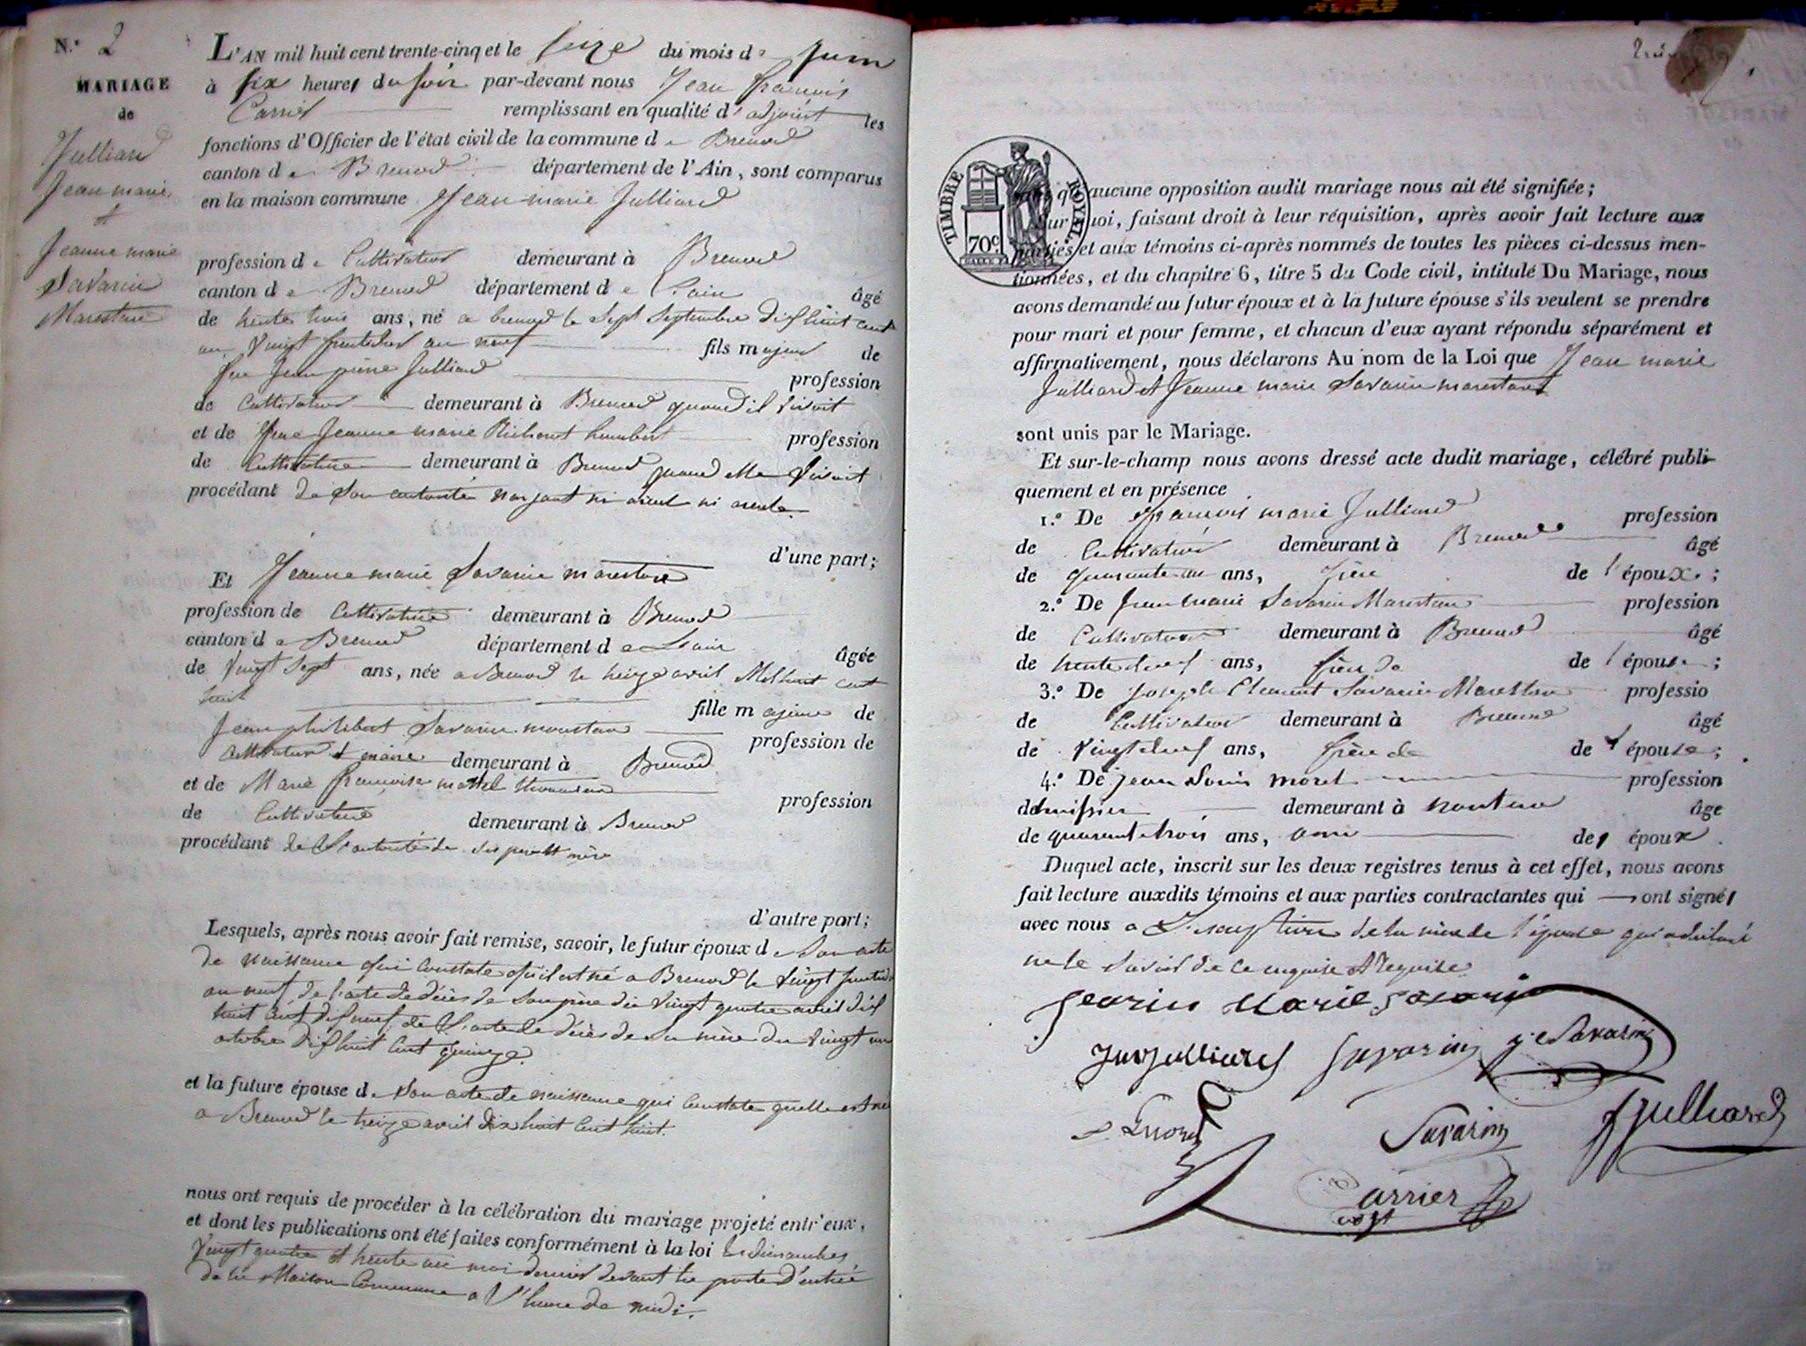 N.º 2
MARIAGE
de
Julliard
Jean marie
et
Jeanne marie
Savarin
Marestan
L'AN mil huit cent trente-cinq et le seize du mois de Juin
à six heures du soir par-devant nous Jean françois
Carrier remplissant en qualité d'adjoint les
fonctions d'Officier de l'état civil de la commune de Brenod
canton de Brenod département de l'Ain, sont comparus
en la maison commune Jean marie Julliard
profession de Cultivateur demeurant à Brenod
canton de Brenod département de l'ain âgé
de trente trois ans, né a brenod le sept Septembre dix huit cent
un vingt fructidor an neuf fils majeur de
feu Jean pierre Julliard profession
de Cultivateur demeurant à Brenod quand il vivait
et de feue Jeanne marie humbert profession
de Cultivatrice demeurant à Brenod quand elle vivait
procédant de son autorité n'ayant ni aieul ni aieule
d'une part;
Et Jeanne marie Savarin marestan
profession de Cultivatrice demeurant à Brenod
canton de Brenod département de L'ain âgée
de vingt sept ans, née a Brenod le treize avril Mil huit cent
huit fille majeure de
Jean philibert Savarin marestan profession de
Cultivateur et maire demeurant à Brenod
et de Marie françoise profession
de Cultivatrice demeurant à Brenod
procédant de l'autorité de ses père et mère
d'autre part;
Lesquels, après nous avoir fait remise, savoir, le futur époux de Son acte
de naissance qui constate qu'il est né a Brenod le vingt fructidor
an neuf, de l'acte de décès de son père du vingt quatre avril dix
huit cent dix neuf, de l'acte de décès de sa mère du vingt un
octobre dix huit cent quinze.
et la future épouse de Son acte de naissance qui constate qu'elle est née
a Brenod le treize avril dix huit cent huit.
nous ont requis de procéder à la célébration du mariage projeté entr'eux,
et dont les publications ont été faites conformément à la loi les dimanches
vingt quatre et trente un mai dernier devant la porte d'entrée
de la Maison Commune a l'heure de midi.
TIMBRE ROYAL
70c
aucune opposition audit mariage nous ait été signifiée;
Sur quoi, faisant droit à leur réquisition, après avoir fait lecture aux
parties et aux témoins ci-après nommés de toutes les pièces ci-dessus men-
tionnées, et du chapitre 6, titre 5 du Code civil, intitulé Du Mariage, nous
avons demandé au futur époux et à la future épouse s'ils veulent se prendre
pour mari et pour femme, et chacun d'eux ayant répondu séparément et
affirmativement, nous déclarons Au nom de la Loi que Jean marie
Julliard et Jeanne marie Savarin marestan
sont unis par le Mariage.
Et sur-le-champ nous avons dressé acte dudit mariage, célébré publi-
quement et en présence
1.º De françois marie Julliard profession
de Cultivateur demeurant à Brenod âgé
de quarante un ans, frère de l'époux;
2.º De Jean marie Savarin Marestan profession
de Cultivateur demeurant à Brenod âgé
de trente neuf ans, frère de de l'épouse;
3.º De Joseph Clement Savarin Marestan professio
de Cultivateur demeurant à Brenod âgé
de Vingt neuf ans, frère de de l'épouse;
4.º De jean Louis moret profession
d'huissier demeurant à nantua âge
de quarante trois ans, ami des époux.
Duquel acte, inscrit sur les deux registres tenus à cet effet, nous avons
fait lecture auxdits témoins et aux parties contractantes qui ont signés
avec nous a L'exception de la mère de l'épouse qui a déclaré
ne le Savoir de ce enquise et requise
Jeanne Marie Savarin
Julliard Savarin J C Savarin
Moret Savarin Julliard
Carrier
adjt